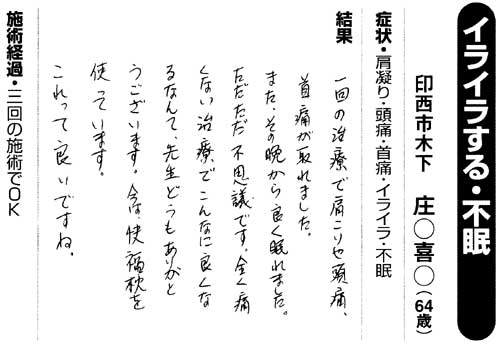 イライラする・不眠
印西市木下　庄○喜○（64歳）
症状・肩凝り・頭痛・首痛・イライラ・不眠
結果
一回の治療で肩こりや頭痛、
首痛が取れました。
また、その晩から良く眠れました。
ただただ不思議です。全く痛
くない治療でこんなに良くな
るなんて、先生どうもありがと
うございます。今は、快福枕を
使っています。
これって良いですね。
施術経過・三回の施術でOK